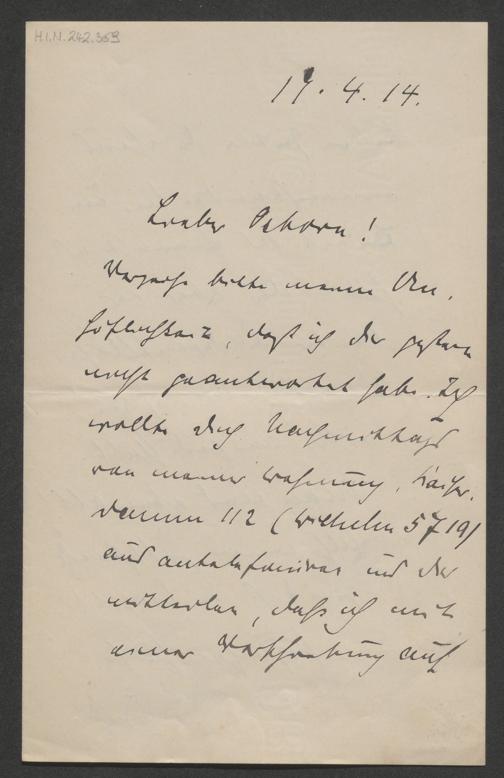 H.I.N. 242.359
17. 4. 14.
Lieber Osborn!
Verzeihe bitte meine Un-
höflichkeit, daß ich dir gestern
nicht geantwortet habe. Ich
wollte dich Nachmittags
von meiner Wohnung, Kaiser-
damm 112 (Wilhelm 5719)
aus antelefonieren und dir
mitteilen, daß ich mit
einer Verschiebung auf